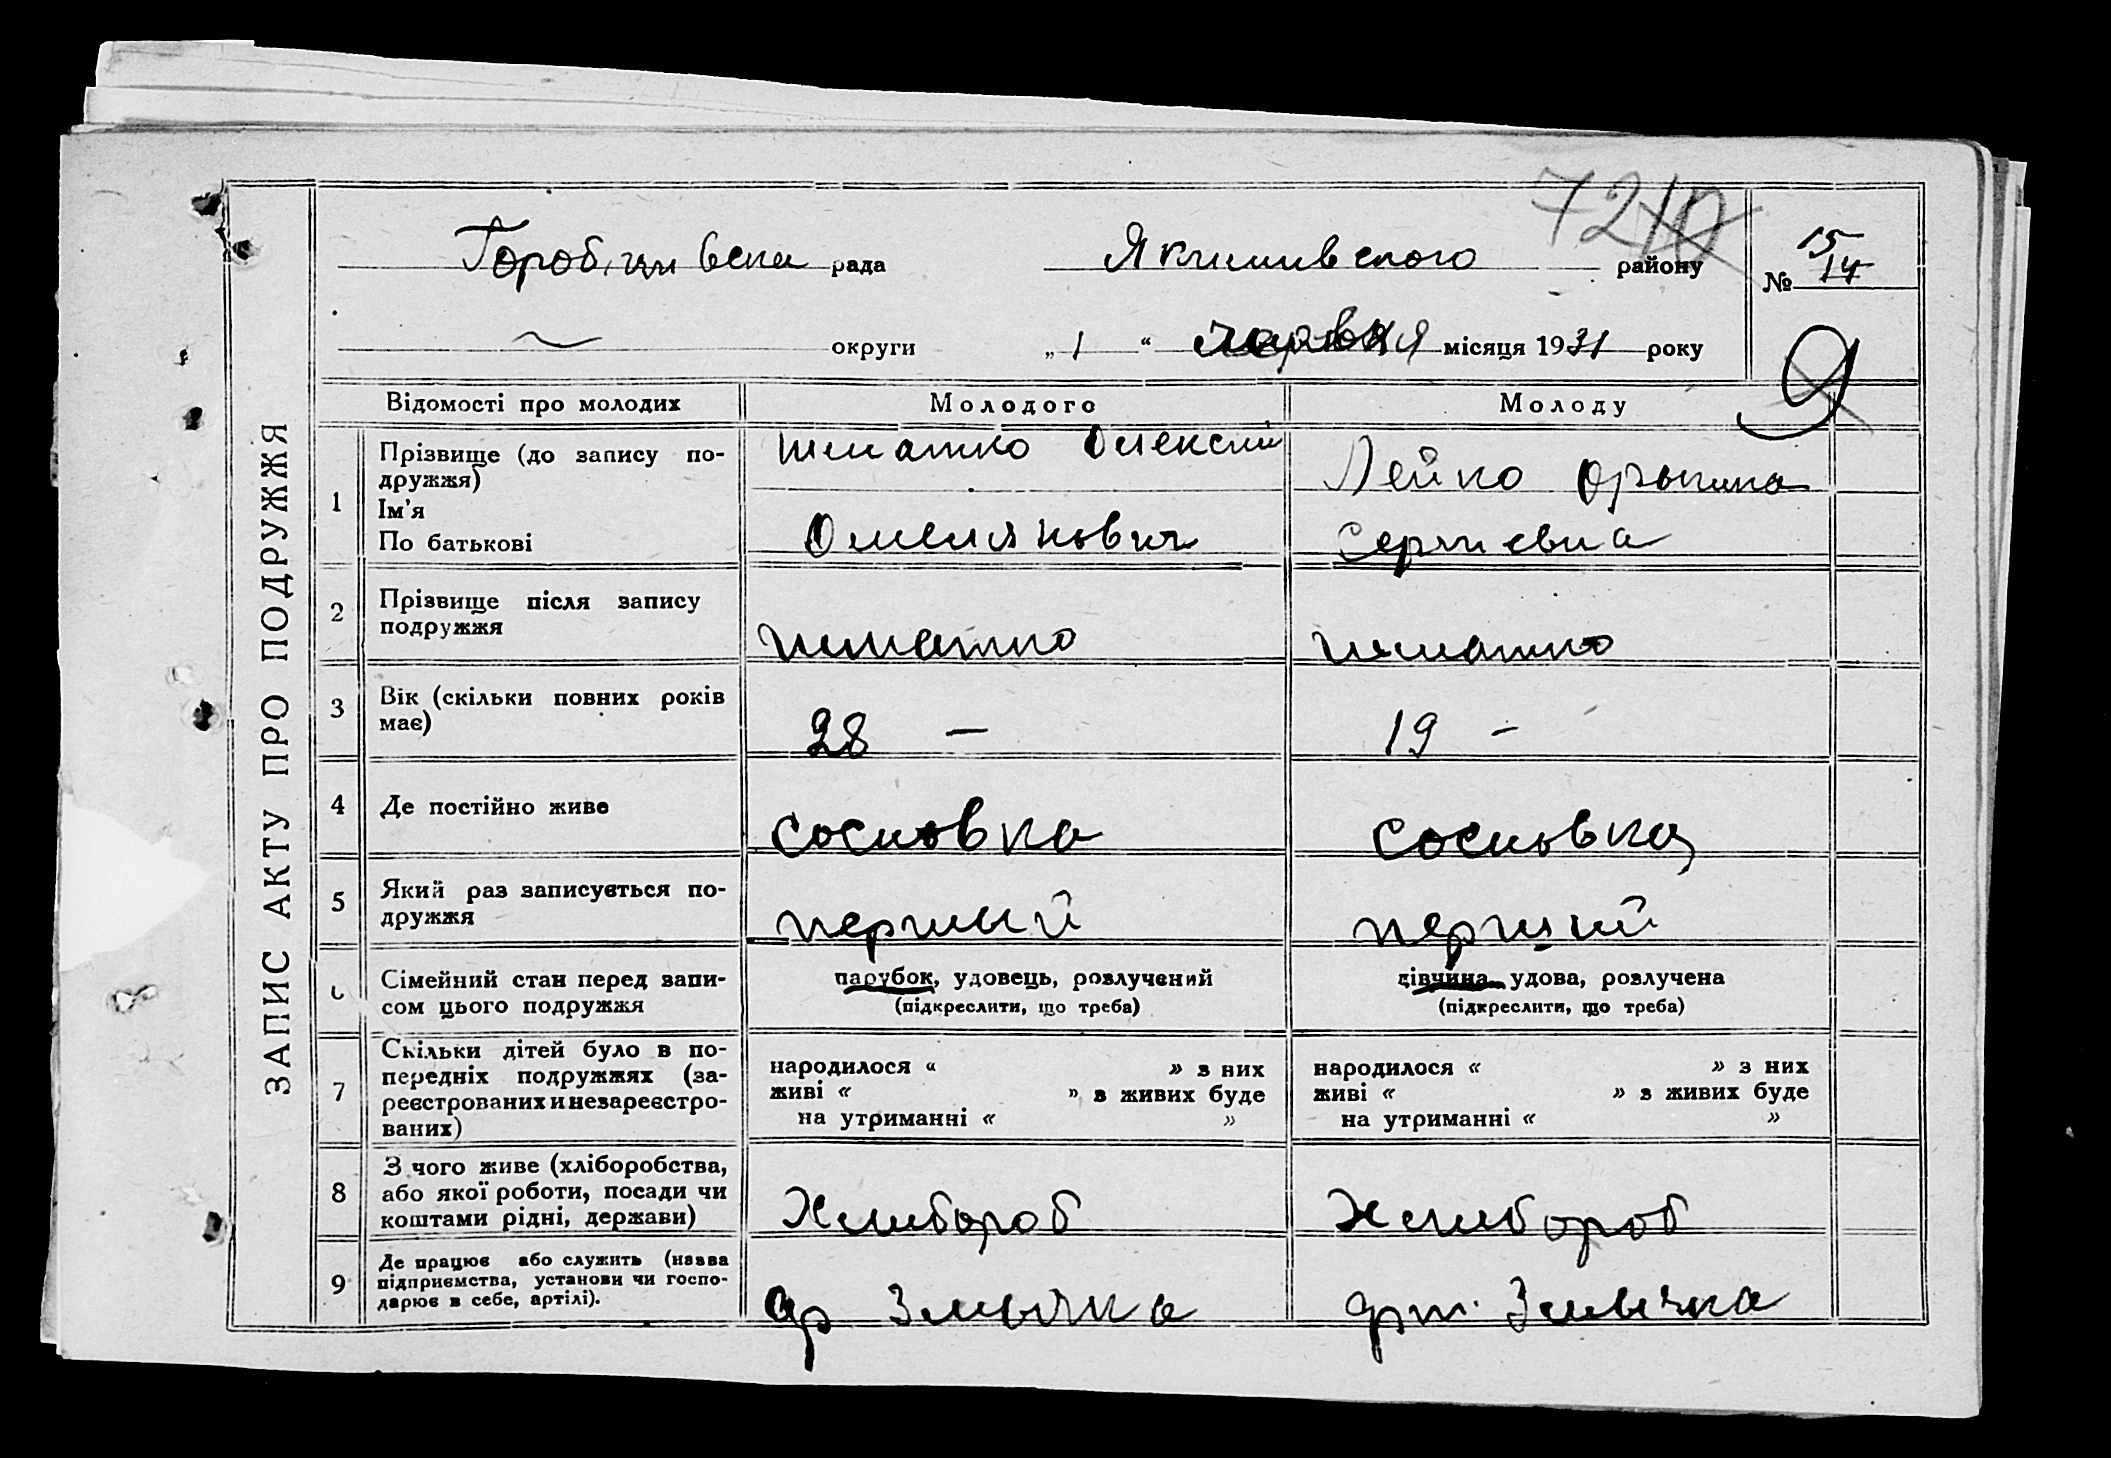 ЗАПИС АКТУ ПРО ПОДРУЖЖЯ
рада
Якимивского району
7210
№ 15/14
округи „ 1 “ червня місяця 1931 року
9
Відомості про молодих Молодого Молоду
1 Прізвище (до запису по-
дружжя)
Ім’я
По батькові
Шматко Олексий
Омелянович
Лейко Орына
Сергиевна
2 Прізвище після запису
подружжя
Шматко
Шматко
3 Вік (скільки повних років
має)
28 —
19 —
4 Де постійно живе
Сосновка
Сосновка
5 Який раз записується по-
дружжя
первый
перший
Сімейний стан перед запи-
сом цього подружжя
парубок, удовець, розлучений
(підкреслити, що треба)
дівчина удова, розлучена
(підкреслити, що треба)
7 Скільки дітей було в по-
передніх подружжях (за-
реєстрованих и незареєстро-
ваних)
народилося « » з них
живі « » з живих буде
на утриманні « »
народилося « » з них
живі « » з живих буде
на утриманні « »
8 З чого живе (хліборобства,
або якої роботи, посади чи
коштами рідні, держави)
Хлибороб
Хлибороб
9 Де працює або служить (назва
підприємства, установи чи госпо-
дарює в себе, артілі).
ар Змычка
арт. Змычка